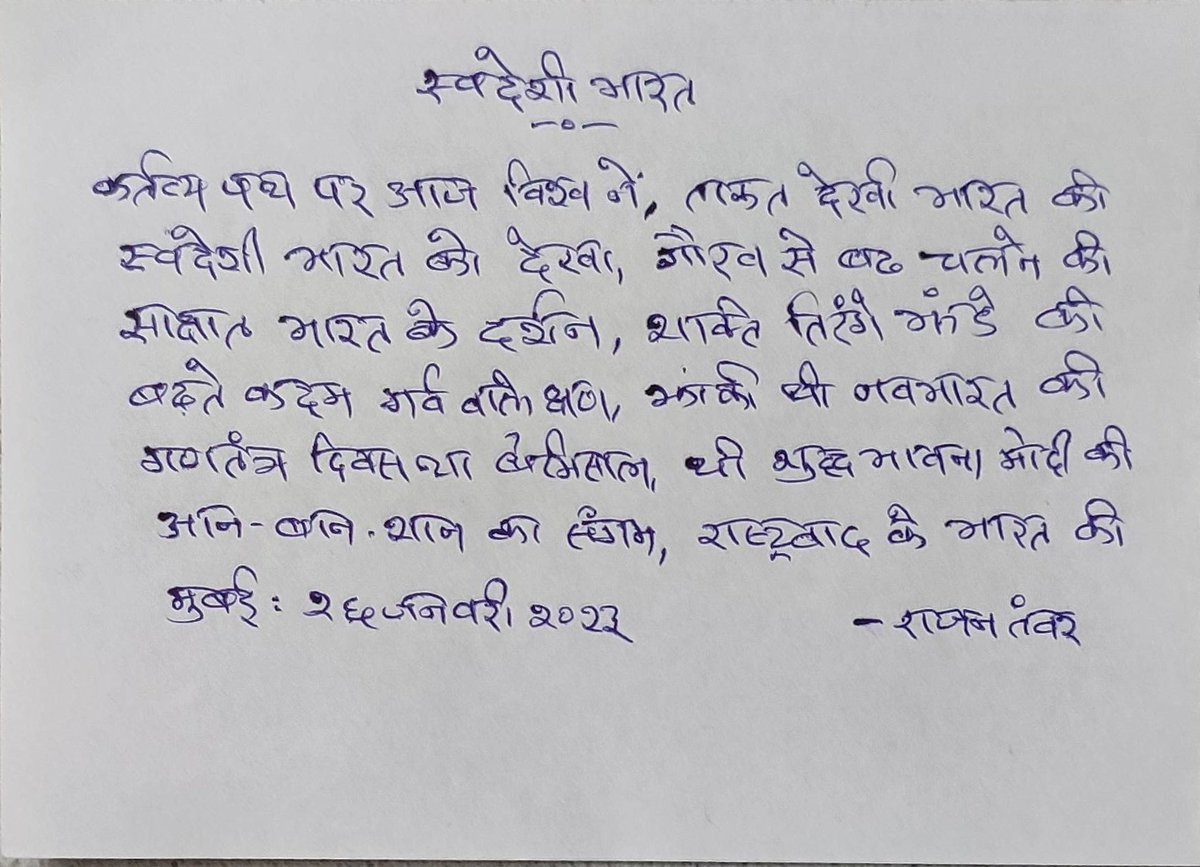 स्वदेशी भारत
कर्तव्य पथ पर आज विश्व नें, ताकत देखी भारत की
स्वदेशी भारत को देखा, गौरव से बढ चलने की
साक्षात भारत के दर्शन, शक्ति तिरंगे झंडे की
बढते कदम गर्व वाले क्षण, झांकी थी नवभारत की
गणतंत्र दिवस था बेमिसाल, थी शुद्ध भावना मोदी की
आन-बान-शान का संगम, राष्ट्रवाद के भारत की
मुंबई: २६ जनवरी २०२३
- राजन तंवर